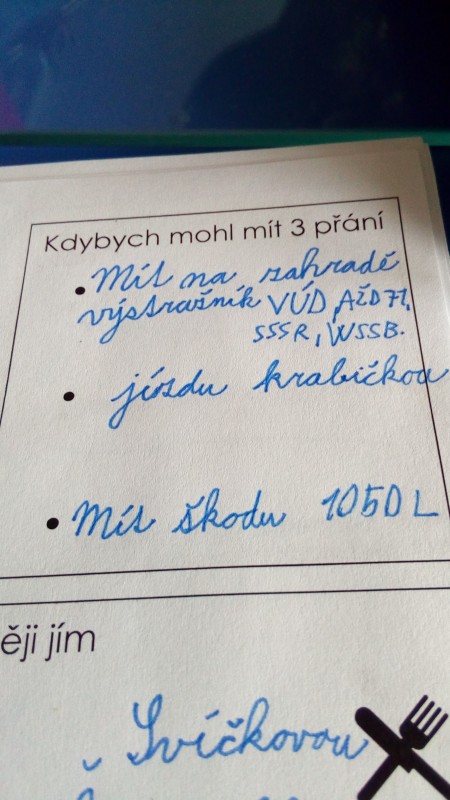 Kdybych mohl mít 3 přání
• Mít na zahradě
výstražník VÚD, AŽD 71,
SSSR, WSSB.
• jízdu krabičkou
• Mít škodu 105D L
ěji jím
Svíčkovou